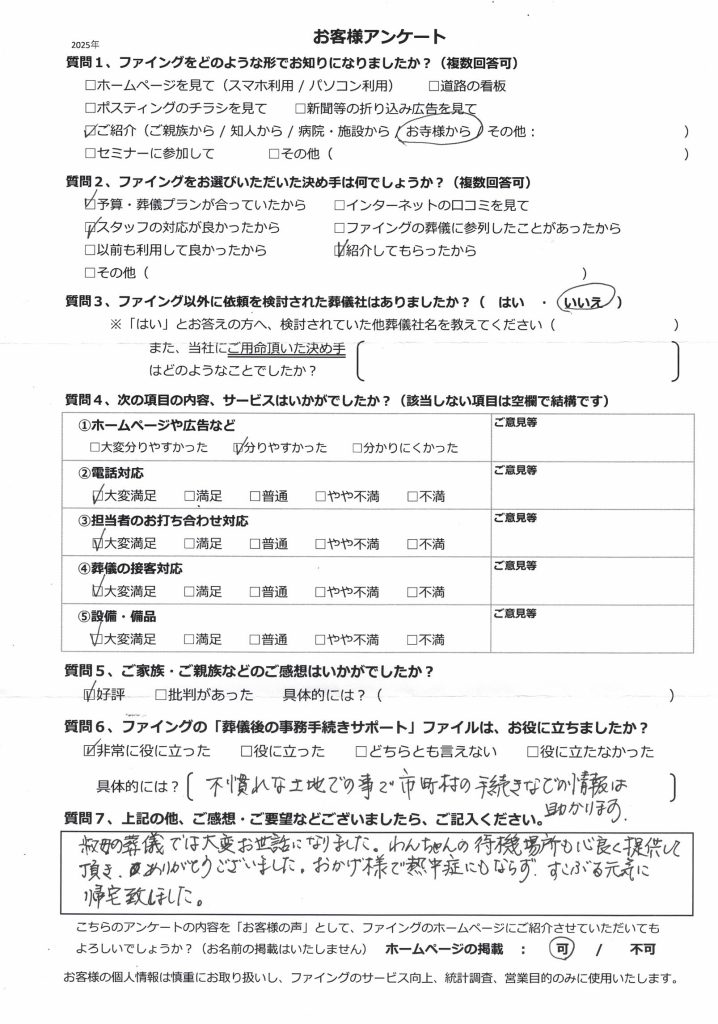 2025年
お客様アンケート
質問1、ファイングをどのような形でお知りになりましたか？（複数回答可）
□ホームページを見て（スマホ利用 / パソコン利用） □道路の看板
□ポスティングのチラシを見て □新聞等の折り込み広告を見て
☑ご紹介（ご親族から / 知人から / 病院・施設から / お寺様から / その他： ）
□セミナーに参加して □その他（ ）
質問2、ファイングをお選びいただいた決め手は何でしょうか？（複数回答可）
☑予算・葬儀プランが合っていたから □インターネットの口コミを見て
☑スタッフの対応が良かったから □ファイングの葬儀に参列したことがあったから
□以前も利用して良かったから ☑紹介してもらったから
□その他（ ）
質問3、ファイング以外に依頼を検討された葬儀社はありましたか？（ はい ・ いいえ ）
※「はい」とお答えの方へ、検討されていた他葬儀社名を教えてください（ ）
また、当社にご用命頂いた決め手
はどのようなことでしたか？
質問4、次の項目の内容、サービスはいかがでしたか？（該当しない項目は空欄で結構です）
①ホームページや広告など ご意見等
□大変分りやすかった ☑分りやすかった □分かりにくかった
②電話対応 ご意見等
☑大変満足 □満足 □普通 □やや不満 □不満
③担当者のお打ち合わせ対応 ご意見等
☑大変満足 □満足 □普通 □やや不満 □不満
④葬儀の接客対応 ご意見等
☑大変満足 □満足 □普通 □やや不満 □不満
⑤設備・備品 ご意見等
☑大変満足 □満足 □普通 □やや不満 □不満
質問5、ご家族・ご親族などのご感想はいかがでしたか？
☑好評 □批判があった 具体的には？（ ）
質問6、ファイングの「葬儀後の事務手続きサポート」ファイルは、お役に立ちましたか？
☑非常に役に立った □役に立った □どちらとも言えない □役に立たなかった
具体的には？ 不慣れな土地での事で市町村の手続きなどの情報は
助かります。
質問7、上記の他、ご感想・ご要望などございましたら、ご記入ください。
叔母の葬儀では大変お世話になりました。わんちゃんの待機場所も心良く提供して
頂き、ありがとうございました。おかげ様で熱中症にもならず、すこぶる元気に
帰宅致しました。
こちらのアンケートの内容を「お客様の声」として、ファイングのホームページにご紹介させていただいても
よろしいでしょうか？（お名前の掲載はいたしません） ホームページの掲載 ： 可 / 不可
お客様の個人情報は慎重にお取り扱いし、ファイングのサービス向上、統計調査、営業目的のみに使用いたします。